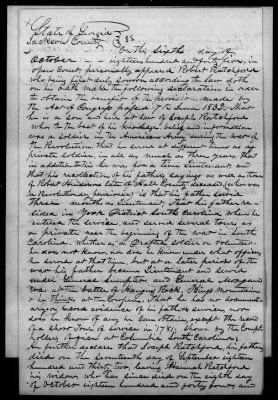 State of Georgia
Jackson County } SS.
On the sixth day of
October — eighteen hundred and forty five, in
open Court, personally appeared Robert Ratchford
who being first duly sworn according the law doth
on his oath make the following declaration in order
to obtain the benefit of the provision made by
the Act of Congress passed 7th June 1832. That
he is a son and heir at law of Joseph Ratchford
who to the best of his knowledge, belief and information
was a soldier in the American Army during the war of
the Revolution, that he served at different times as a
private soldier, in all as much as three years, that
in addition to this he was for a time Lieutenant and
that his recollection of his fathers sayings as well as those
of Robert Henderson late of Hall County deceased (who was
a Revolutionary pensioner) is that his father served
three months as Lieutenant, That his father re-
sided in York District South Carolina when he
entered the service, and served several tours as
a private near the beginning of the war in South
Carolina. Whether as a Drafted soldier or volunteer
he does not know, nor does he know under what officers
he served at that time, but at a later period of the
war his father became Lieutenant and served
under Generals Sumpter and General Morgan
was at the battles of Hanging Rock, Kings Mountain
& he thinks at the Cowpens, That he has no document-
ary or record evidence of his fathers services, nor
does he know of any he can obtain except the record
of a short Tour of service in 1781, shown by the Comp-
trollers office at Columbia, South Carolina,
He further states that Joseph Ratchford, his father
died on the seventeenth day of September eighteen
hundred and thirty two, leaving Hannah Ratchford
his widow, who has since died on the eighth day
of October eighteen hundred and forty four, and